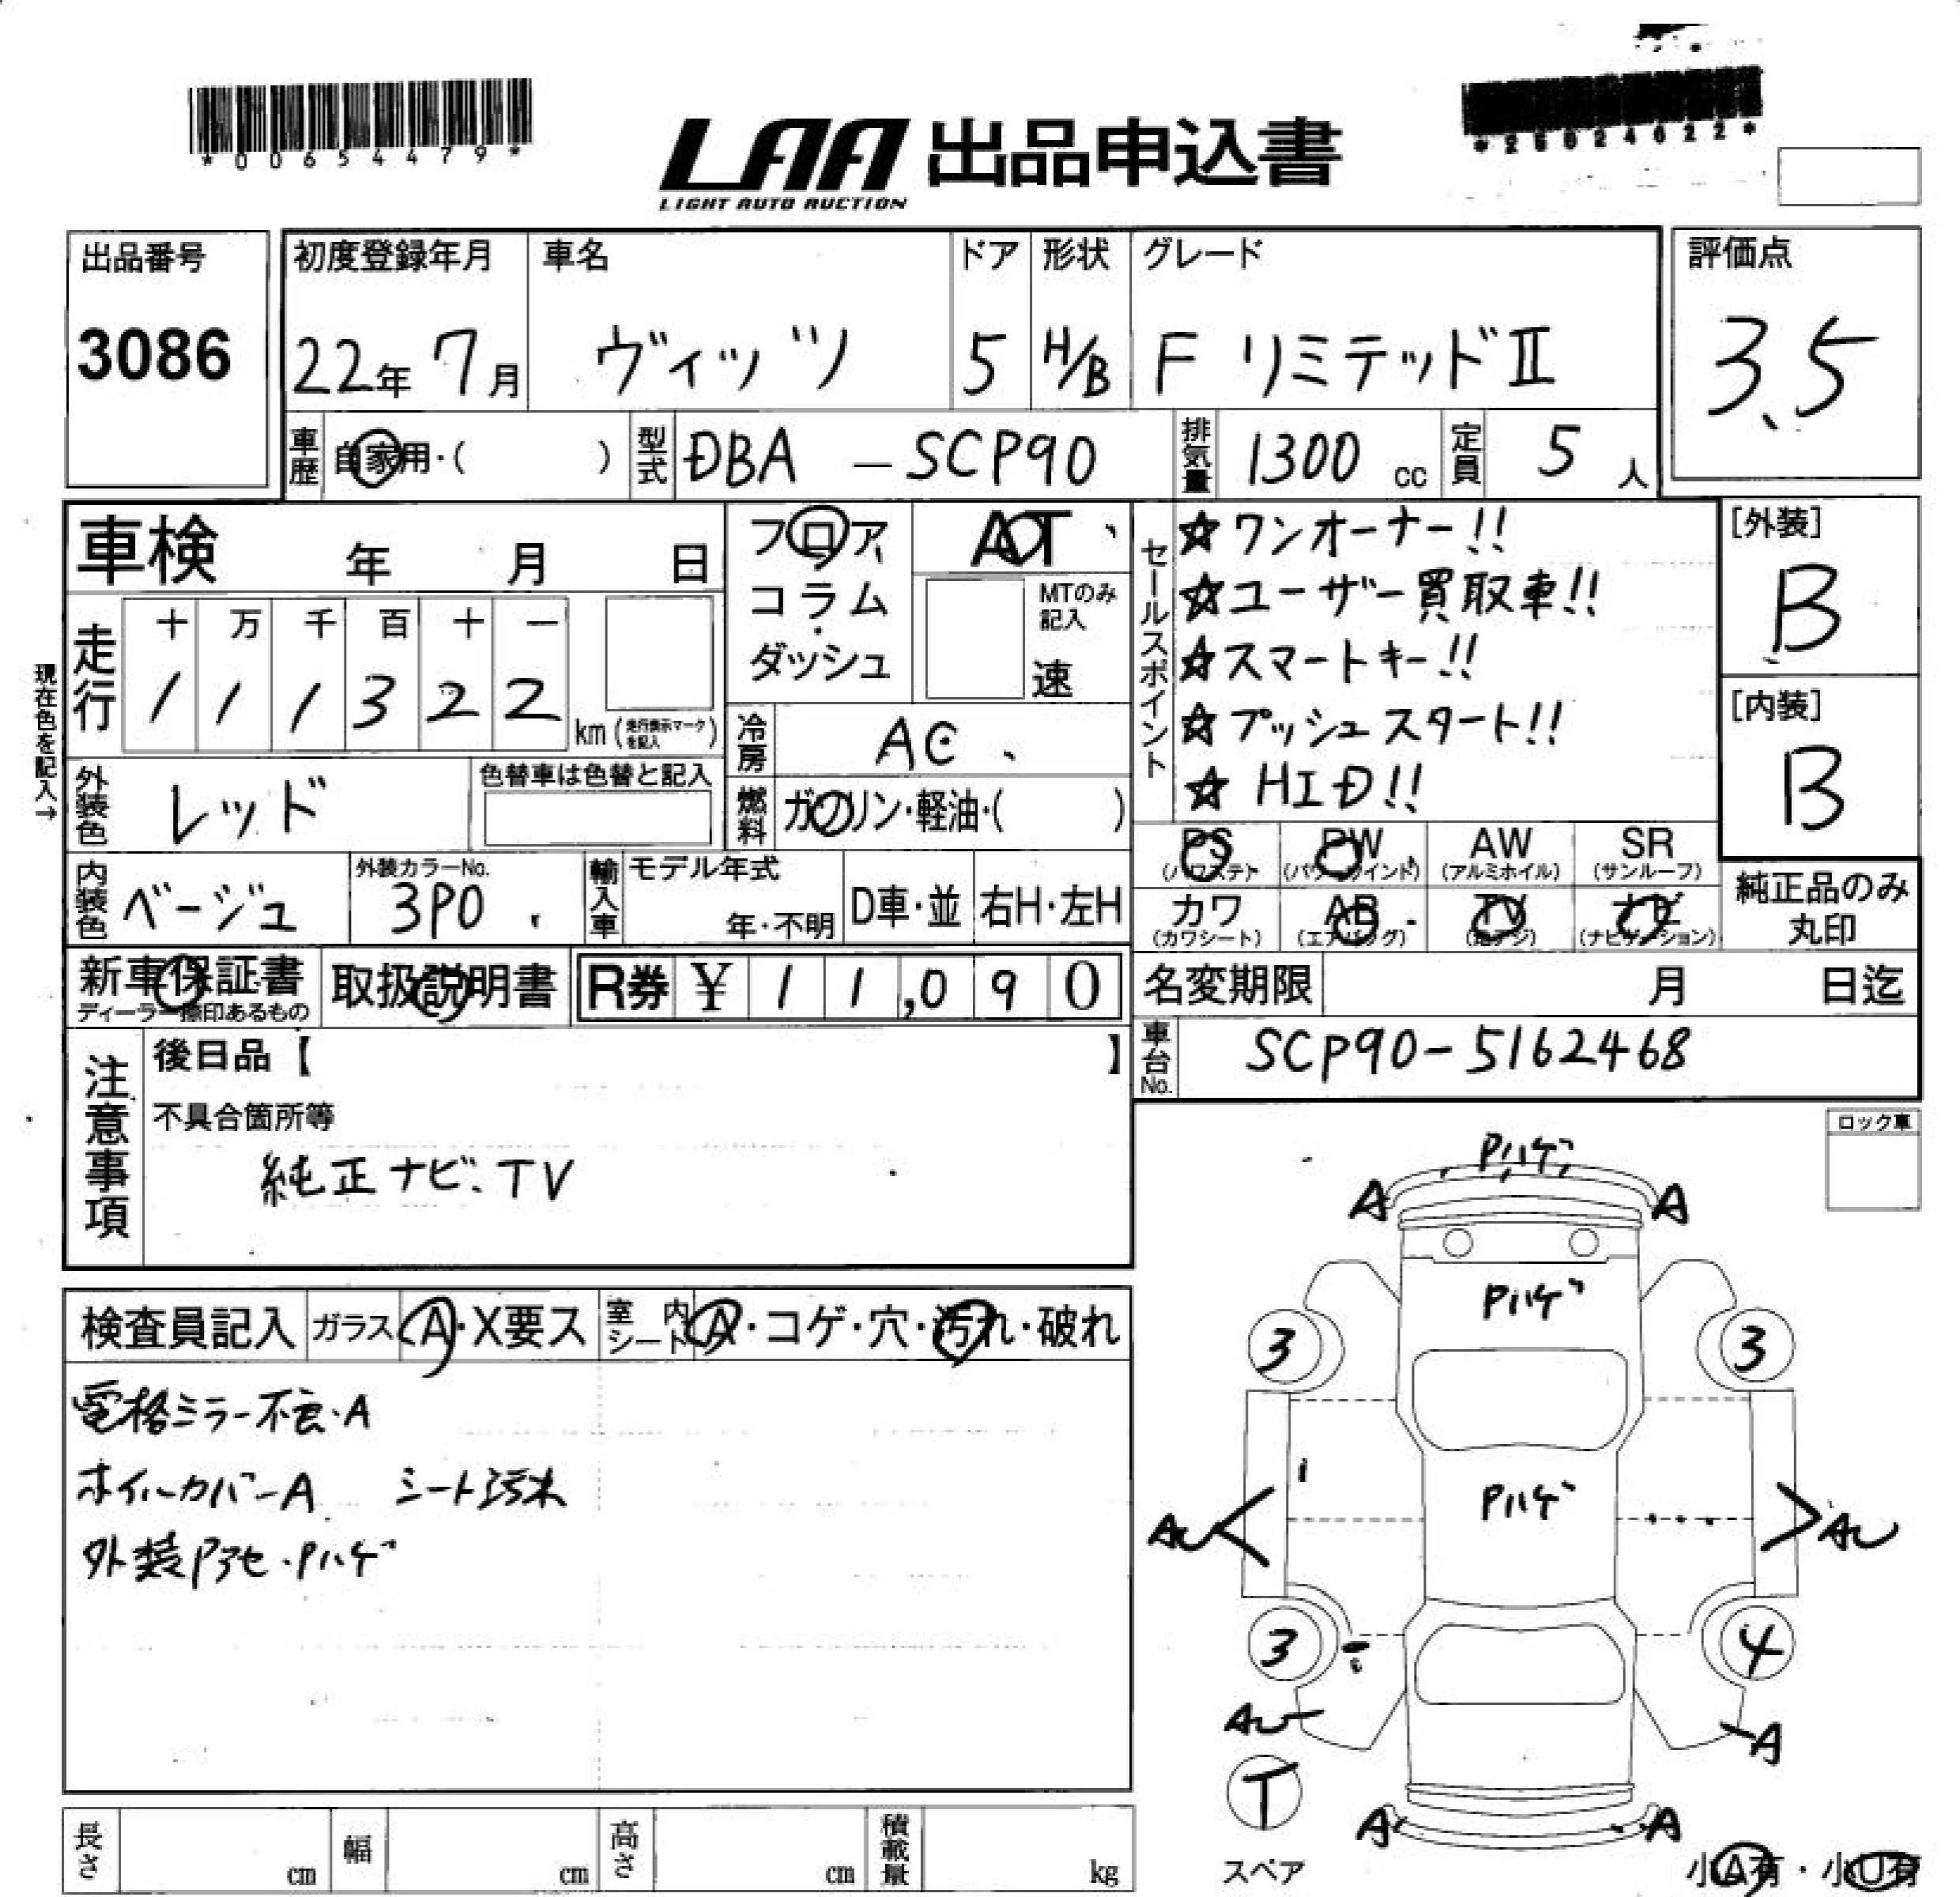 *00654479*
LAA 出品申込書
LIGHT AUTO AUCTION
*25024022*
出品番号
3086
初度登録年月
22年 7月
車名
ヴィッツ
ドア
5
形状
H/B
グレード
F リミテッドⅡ
評価点
3.5
車歴 自家用・( )
型式 DBA - SCP90
排気量 1300 cc
定員 5 人
車検 年 月 日
フロア
コラム
ダッシュ
AT
MTのみ記入
速
セールスポイント
☆ワンオーナー!!
☆ユーザー買取車!!
☆スマートキー!!
☆プッシュスタート!!
☆HID!!
[外装]
B
[内装]
B
現在色を記入→
走行
十 万 千 百 十 一
1 1 1 3 2 2
km (走行表示マークを記入)
冷房 AC
燃料 ガソリン・軽油・( )
外装色 レッド
色替車は色替と記入
内装色 ベージュ
外装カラーNo.
3P0
輸入車
モデル年式
年・不明
D車・並
右H・左H
PS (パワステ)
PW (パワーウインド)
AW (アルミホイル)
SR (サンルーフ)
カワ (カワシート)
AB (エアバッグ)
TV (地デジ)
ナビ (ナビゲーション)
純正品のみ
丸印
新車保証書
ディーラー捺印あるもの
取扱説明書
R券 ¥ 11,090
名変期限 月 日迄
車台No. SCP90-5162468
注意事項
後日品【 】
不具合箇所等
純正ナビ、TV
ロック車
検査員記入
ガラス A・X要ス
室内シート A・コゲ・穴・汚れ・破れ
電格ミラー不良・A
ホイルカバーA シート汚れ
外装Pアセ・Pハゲ
Pハゲ
A A
Pハゲ
3 3
Pハゲ
AU AU
3 4
AU A
T
スペア
A A
小A有・小U有
長さ cm
幅 cm
高さ cm
積載量 kg